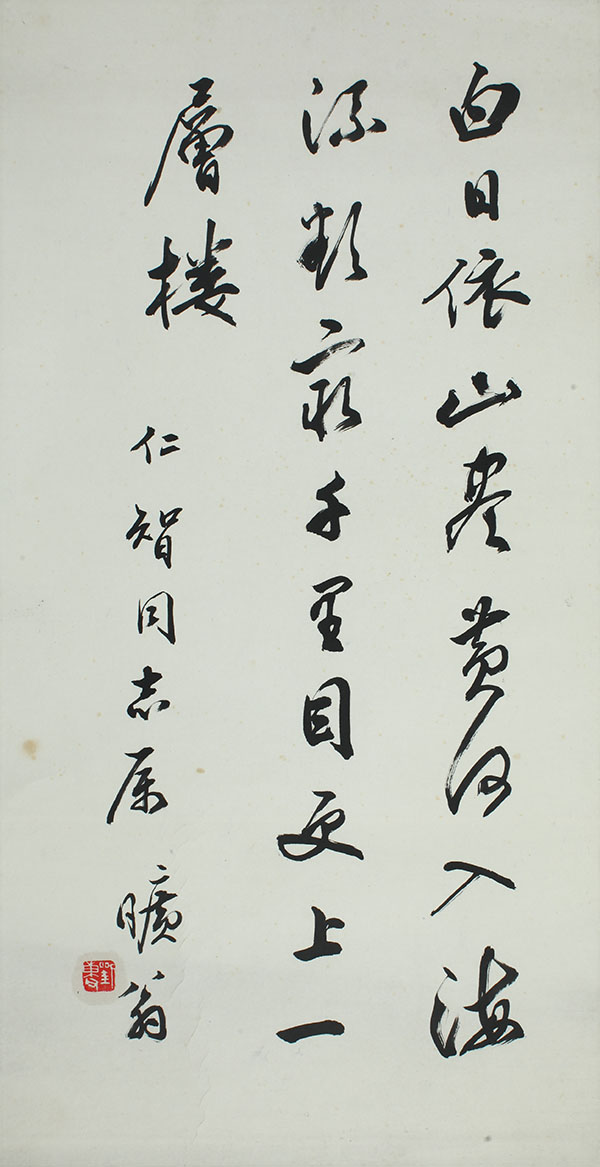 白日依山盡黄河入海
流欲窮千里目更上一
層楼
仁智同志属 曠翁